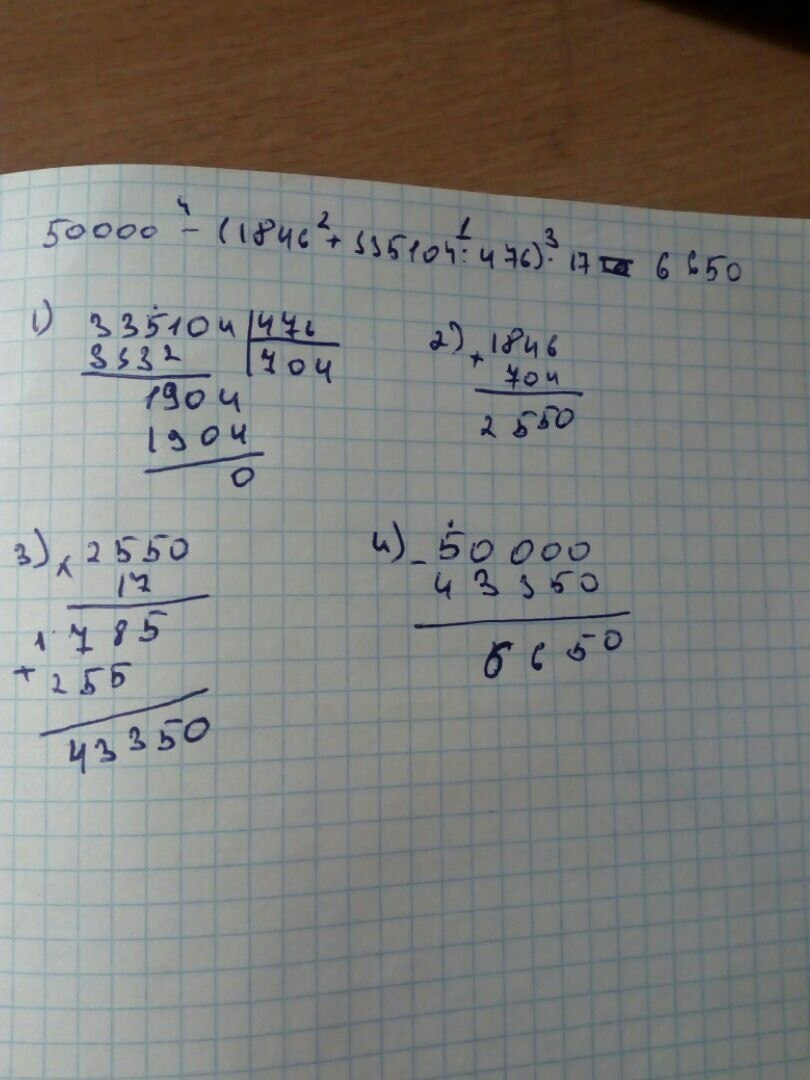 50000 - (1846 + 335104 : 476) · 17 = 6650
4 2 1 3
1) 335104 | 476
3332 | 704
1904
1904
0
2) + 1846
704
2550
3) x 2550
17
1785
+ 255
43350
4) - 50000
43350
6650